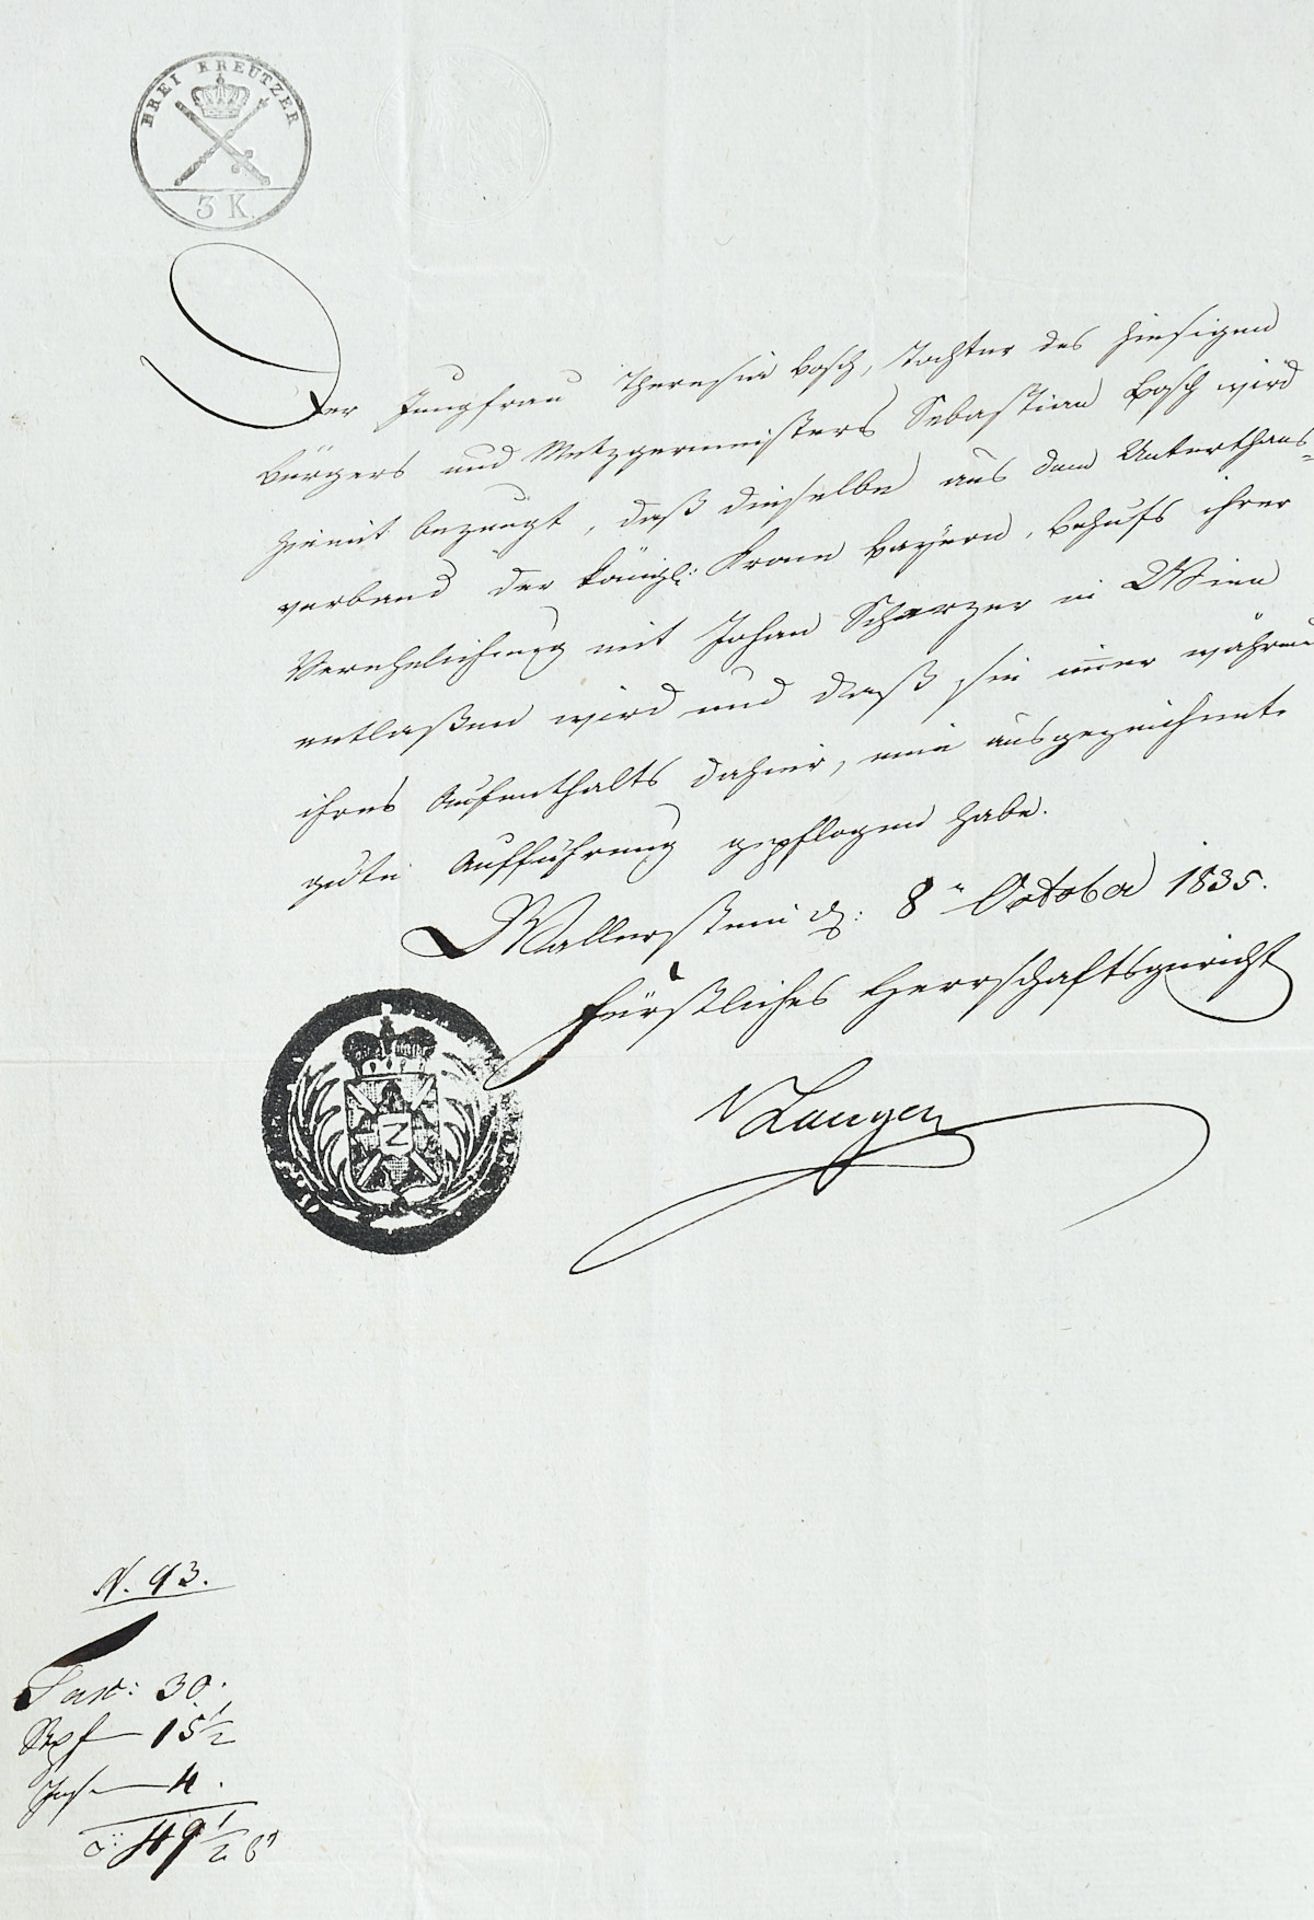 DREI KREUTZER
3 K.
Der Jungfrau Theresia Bosch, Tochter des hiesigen
Bürgers und Metzgermeisters Sebastian Bosch wird
hiemit bezeugt, daß dieselbe aus dem Unterthans=
verband der königl: Krone Bayern, Behufs ihrer
Verehelichung mit Johan Scherzer in Wien
entlaßen wird und daß sie im̄er während
ihres Aufenthalts dahier, eine ausgezeichnete
gute Aufführung gepflogen habe.
Wallerstein d: 8n October 1835.
Fürstliches Herrschaftsgericht
v Langen
N. 93.
Tax: 30.
15 1/2
4.
49 1/2